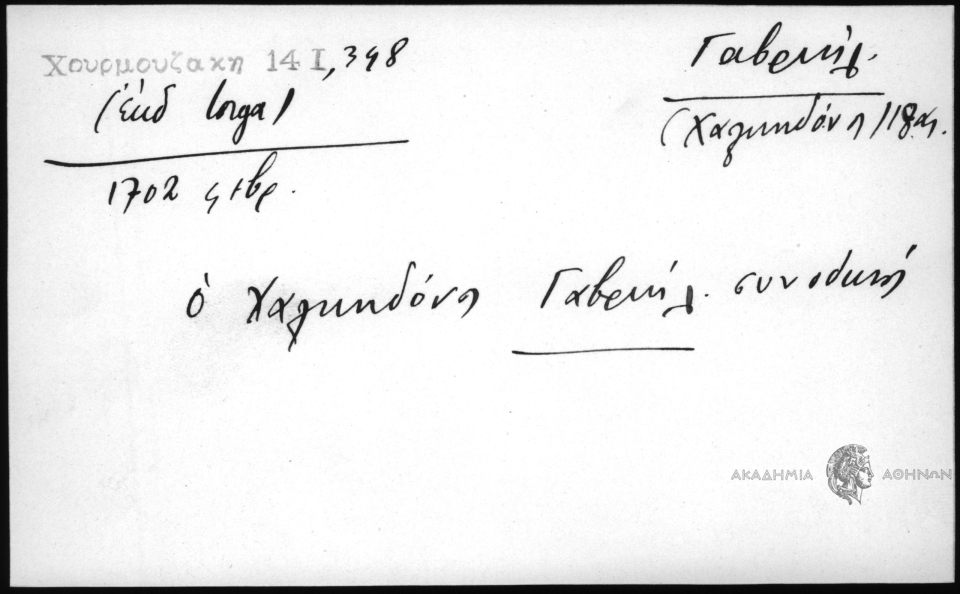 Χουρμουζακη 14 I, 348
(ἐκδ Iorga)
1702 ςτβρ.
Γαβριήλ.
(Χαλκηδόνος) 18 αι.
ὁ Χαλκηδόνος Γαβριήλ. συνοδικός
ΑΚΑΔΗΜΙΑ ΑΘΗΝΩΝ